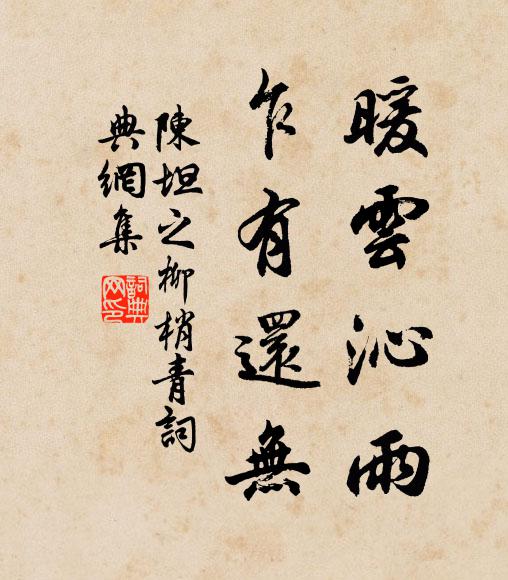 暖雲沁雨
乍有還無
陳坦之柳梢青詞
典網集
詞典
网印